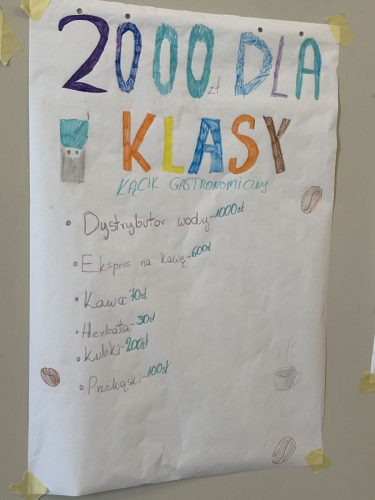 2000 zł DLA
KLASY
KĄCIK GASTRONOMICZNY
• Dystrybutor wody-1000zł
• Ekspres na kawę-600zł
• Kawa-70zł
• Herbata-30zł
• Kubki-200zł
• Przekąski-100zł